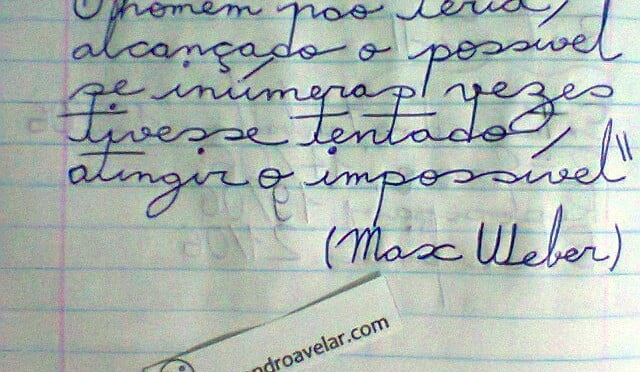 O homem não teria
alcançado o possível
se inúmeras vezes
tivesse tentado
atingir o impossível"
(Max Weber)
ndroavelar.com